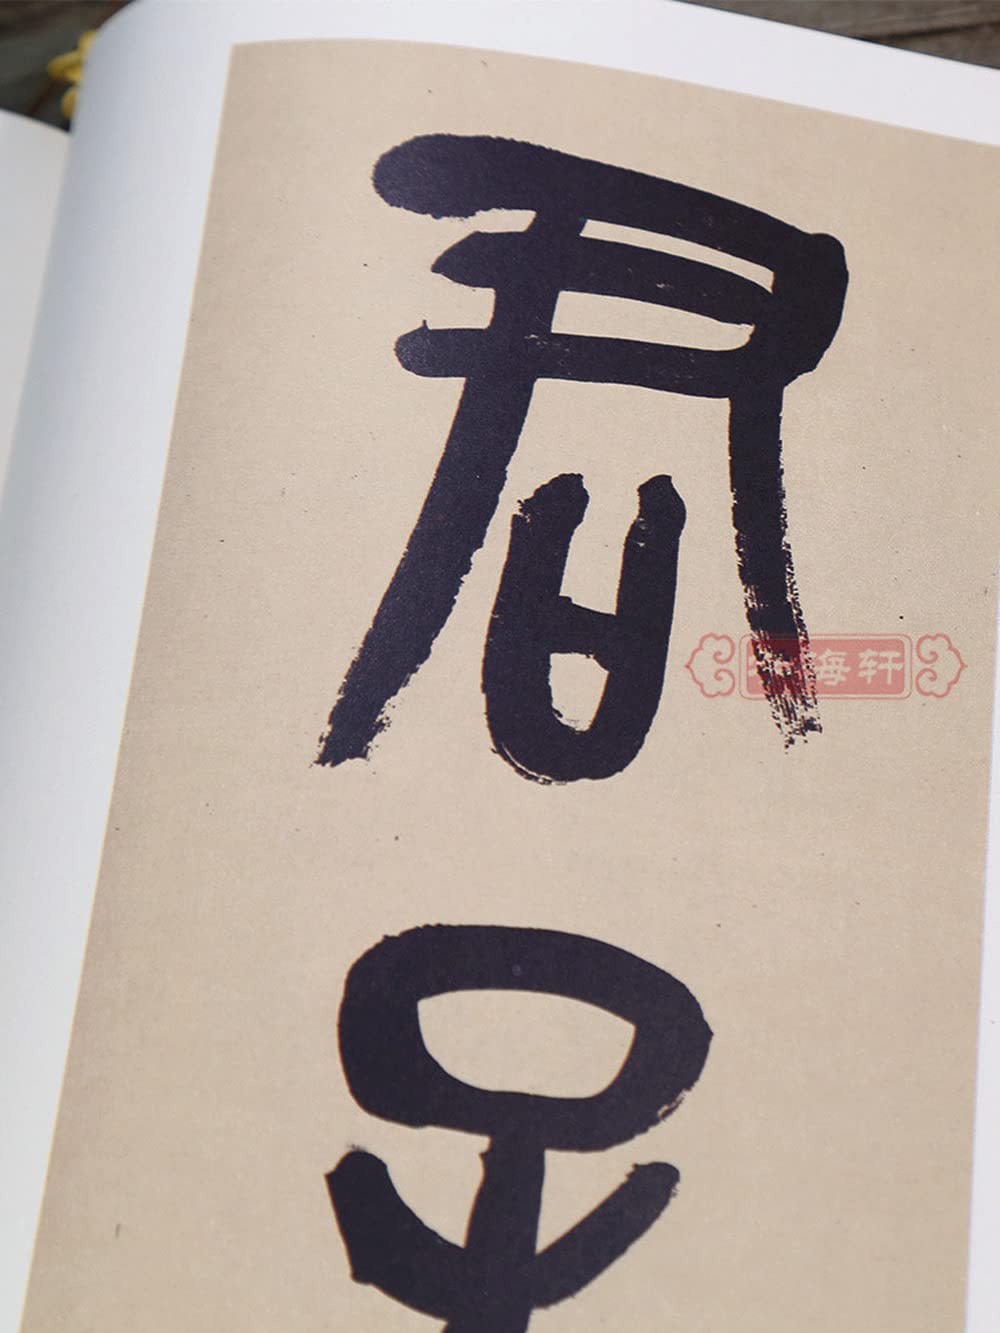 君子
海轩